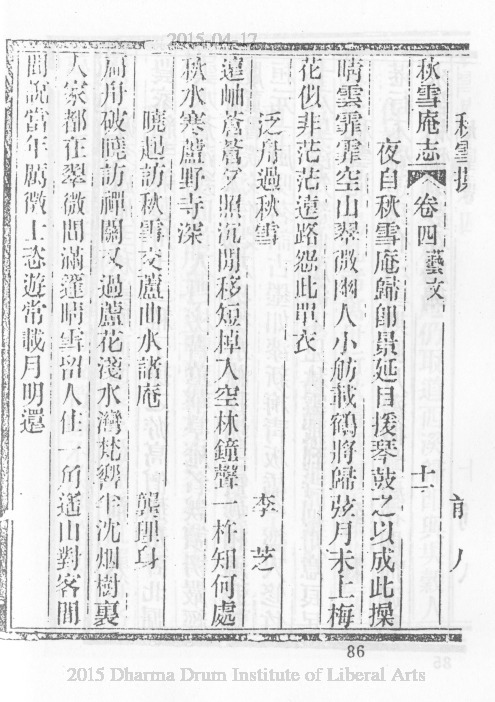 2015-04-17
秋雪操
前人
秋雪庵志 卷四藝文 十一
夜自秋雪庵歸卽景延目援琴鼓之以成此操
晴雲霏霏空山翠微幽人小舫載鶴將歸弦月未上梅
花似非茫茫遠路怨此單衣
泛舟過秋雪
李芝
遠岫蒼蒼夕照沉閒移短棹入空林鐘聲一杵知何處
秋水寒蘆野寺深
曉起訪秋雪交蘆曲水諸庵
龔理身
扁舟破曉訪禪關又過蘆花淺水灣梵響半沈烟樹裏
人家都在翠微間滿篷晴雪留人住一角遙山對客閒
聞說當年厲徵士恣遊常載月明還
86
2015 Dharma Drum Institute of Liberal Arts